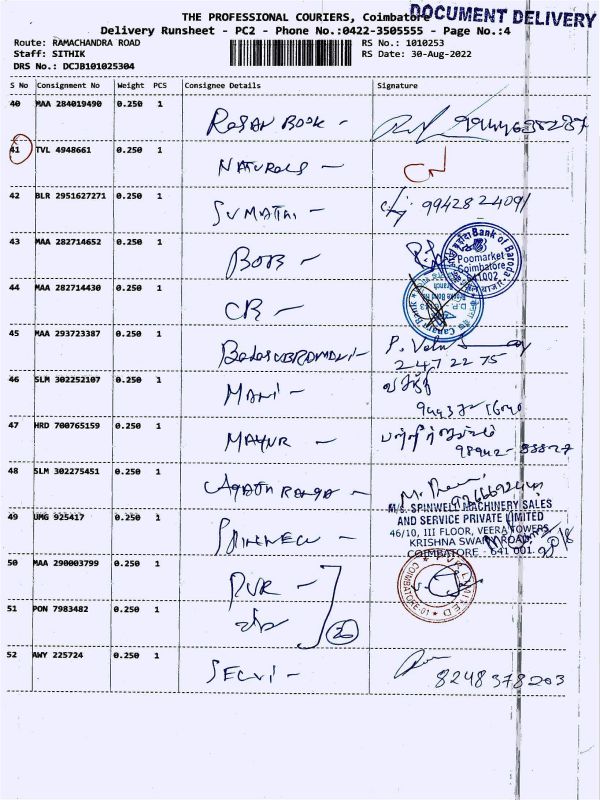 THE PROFESSIONAL COURIERS, Coimbatore
DOCUMENT DELIVERY
Delivery Runsheet - PC2 - Phone No.:0422-3505555 - Page No.:4
Route: RAMACHANDRA ROAD RS No.: 1010253
Staff: SITHIK RS Date: 30-Aug-2022
DRS No.: DCJB101025304
S No Consignment No Weight PCS Consignee Details Signature
40 MAA 284019490 0.250 1
BOOK
41 TVL 4948661 0.250 1
NATURALS
42 BLR 2951627271 0.250 1
9942824091
43 MAA 282714652 0.250 1
BOB
Bank of Baroda
Poomarket
Coimbatore
641002
44 MAA 282714430 0.250 1
CB
Canara Bank
45 MAA 293723387 0.250 1
P. Velu
2472275
46 SLM 302252107 0.250 1
MANI
47 HRD 700765159 0.250 1
MAYUR
48 SLM 302275451 0.250 1
49 UMG 925417 0.250 1
SPINWELL
M/S. SPINWELL MACHINERY SALES
AND SERVICE PRIVATE LIMITED
46/10, III FLOOR, VEERA TOWERS
KRISHNA SWAMY ROAD
COIMBATORE - 641 001.
50 MAA 290003799 0.250 1
PVR
51 PON 7983482 0.250 1
52 AWY 225724 0.250 1
SELVI
8248378203